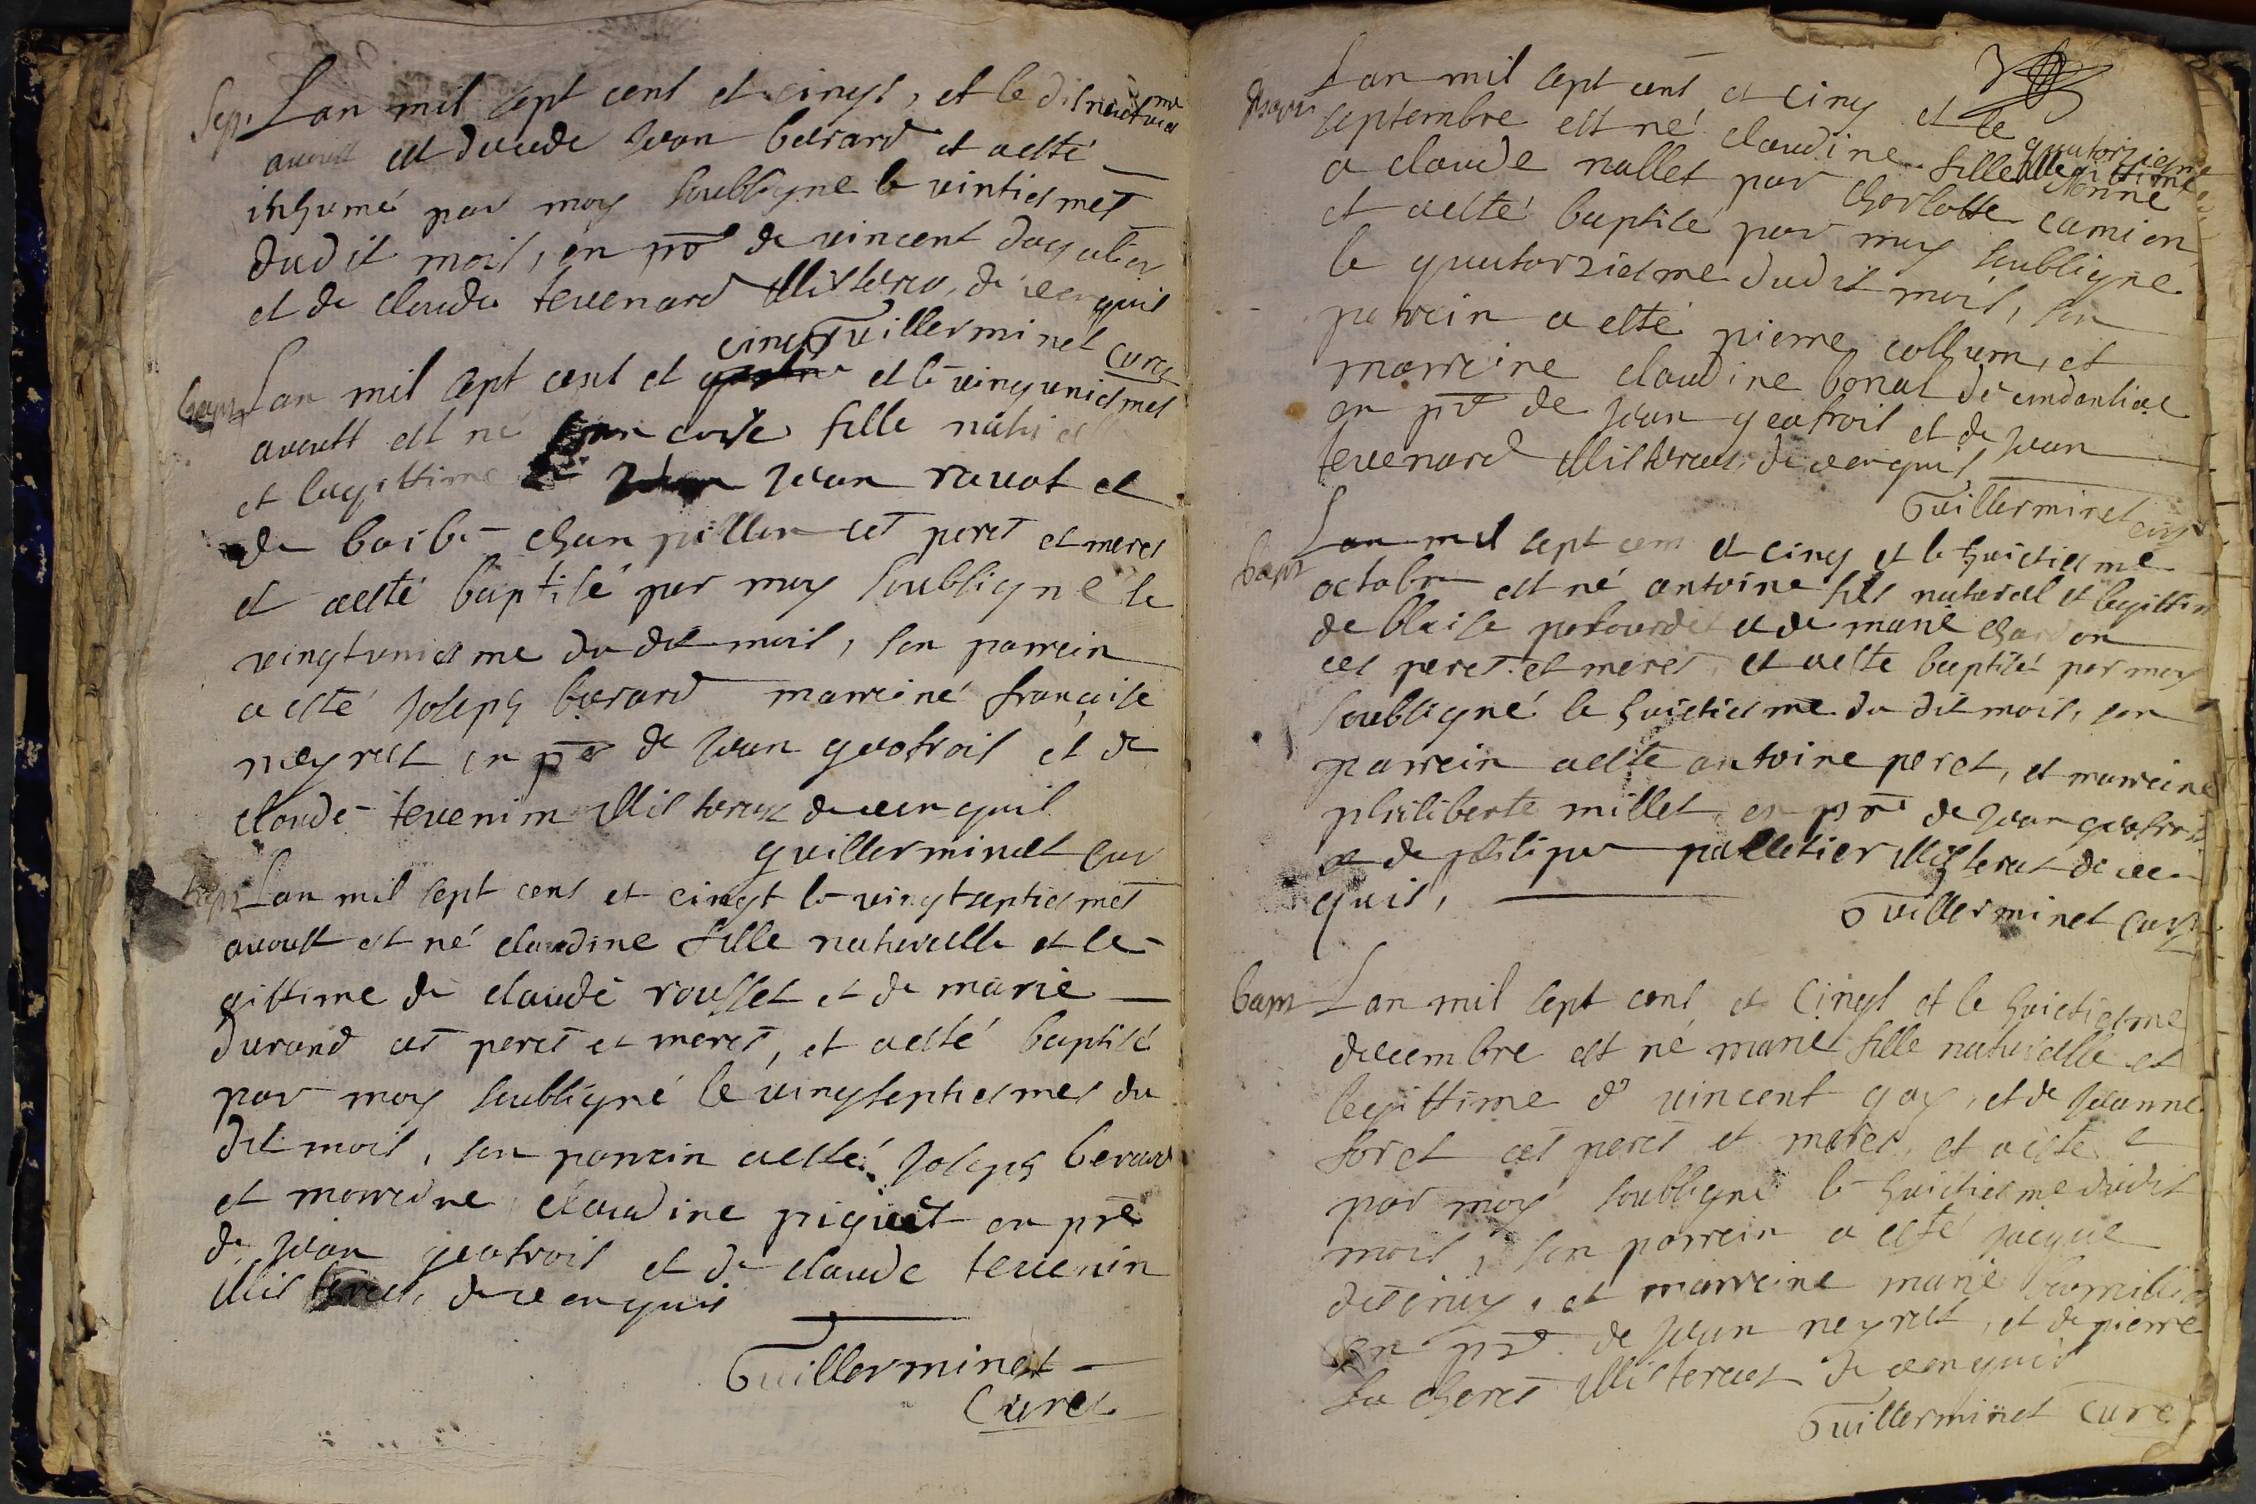 Sep. Lan mil sept cens et cinqt, et le disneufviesme
aoust est decede Jean berard et aesté
inhumé par moy soubsigne le vintiesmes
dudit mois, en pñce de vincent
et de claude tevenard illisteres, de ce enquis
Guillerminet cure
cinq
bapt Lan mil sept cent et et le vinguniesmes
aoust est né fille
et legittime Jean ravat et
de chanpillon ces peres et meres
et aesté baptisé par moy soubsigne le
vingtuniesme du dit mois, son parrein
a esté Joseph berard marreiné françoise
neyret en pñce de Jean geofrois et de
claude tevenim illisterez de ce enquis
guillerminet cur
bapt Lan mil sept cens et cinqt le vingtseptiesmes
aoust est né claudine fille naturelle et le-
gittime de claude rousset et de marie
durand ces peres et meres, et aesté baptisé
par moy soubsigné le vingseptiesmes du
dit mois, son parrein aesté Joseph berard
et marreine claudine piquet en pñce
de Jean geofrois et de claude tevenin
illisteres, de ce enquis
Guillerminet
Cures
Lan mil sept cens et cinq et le quatorziesme
bapt septembre est né claudine fille illegittime
a claude nallet par charlotte camien
et aesté baptisé par moy soubsigne
le quatorziesme dudit mois, son
parrein a esté pierre collum, et
marreine claudine bonat de
en pñce de Jean geofrois et de Jean
tevenard illisteres, de ce enquis
Guillerminet cure
bapt Lan mil sept cens et cinq et le huictiesme
octobre est né antoine fils naturel et legittim
de blaise et de marie chardon
ces peres et meres, et aesté baptisé par moy
soubsigné le huictiesme du dit mois, son
parrein aesté antoine peret, et marreine
philiberte millet en pñce de Jean geofrois
et de philiper pelletier illisteres de ce en
quis,
Guillerminet cure
bapt Lan mil sept cens et cinqt et le huictiesme
decembre est né marie fille naturelle et
legittime de vincent gay, et de Jeanne
foret ces peres et meres, et aesté
par moy soubsigné le huictiesme dudit
mois, son parrein a esté jacque
et marreine marie
en pñce de Jean neyret, et de pierre
illisteres de ce enquis
Guillerminet cure